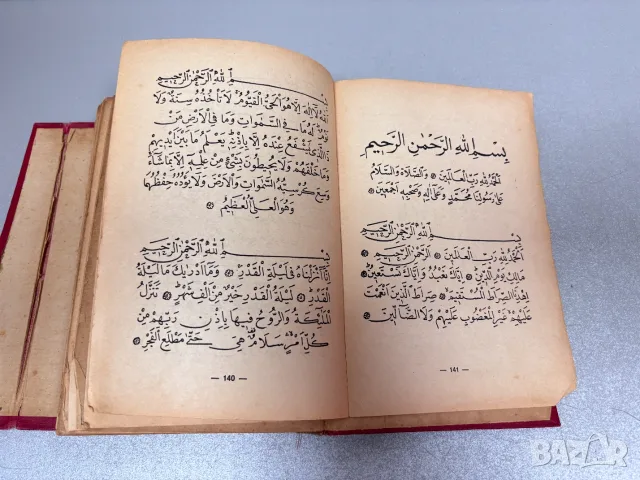 بِسْمِ اللهِ الرَّحْمٰنِ الرَّحِيمِ
اَللهُ لَا اِلٰهَ اِلَّا هُوَ الْحَيُّ الْقَيُّومُ لَا تَأْخُذُهُ سِنَةٌ وَلَا
نَوْمٌ لَهُ مَا فِى السَّمٰوَاتِ وَمَا فِى الْاَرْضِ مَنْ
ذَا الَّذِى يَشْفَعُ عِنْدَهُ اِلَّا بِاِذْنِهِ يَعْلَمُ مَا بَيْنَ اَيْدِيهِمْ
وَمَا خَلْفَهُمْ وَلَا يُحِيطُونَ بِشَىْءٍ مِنْ عِلْمِهِ اِلَّا بِمَا شَاءَ
وَسِعَ كُرْسِيُّهُ السَّمٰوَاتِ وَالْاَرْضَ وَلَا يَؤُدُهُ حِفْظُهُمَا
وَهُوَ الْعَلِىُّ الْعَظِيمُ
بِسْمِ اللهِ الرَّحْمٰنِ الرَّحِيمِ
اِنَّا اَنْزَلْنَاهُ فِى لَيْلَةِ الْقَدْرِ وَمَا اَدْرٰيكَ مَا لَيْلَةُ
الْقَدْرِ لَيْلَةُ الْقَدْرِ خَيْرٌ مِنْ اَلْفِ شَهْرٍ تَنَزَّلُ
الْمَلٰئِكَةُ وَالرُّوحُ فِيهَا بِاِذْنِ رَبِّهِمْ مِنْ
كُلِّ اَمْرٍ سَلَامٌ هِىَ حَتّٰى مَطْلَعِ الْفَجْرِ
— 140 —
بِسْمِ اللهِ الرَّحْمٰنِ الرَّحِيمِ
اَلْحَمْدُ لِلّٰهِ رَبِّ الْعَالَمِينَ وَالصَّلَاةُ وَالسَّلَامُ
عَلٰى رَسُولِنَا مُحَمَّدٍ وَعَلٰى اٰلِهِ وَصَحْبِهِ اَجْمَعِينَ
بِسْمِ اللهِ الرَّحْمٰنِ الرَّحِيمِ
اَلْحَمْدُ لِلّٰهِ رَبِّ الْعَالَمِينَ اَلرَّحْمٰنِ الرَّحِيمِ
مَالِكِ يَوْمِ الدِّينِ اِيَّاكَ نَعْبُدُ وَاِيَّاكَ نَسْتَعِينُ
اِهْدِنَا الصِّرَاطَ الْمُسْتَقِيمَ صِرَاطَ الَّذِينَ اَنْعَمْتَ
عَلَيْهِمْ غَيْرِ الْمَغْضُوبِ عَلَيْهِمْ وَلَا الضَّالِّينَ
— 141 —
BAZAR